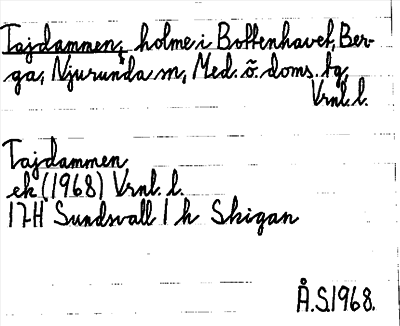 Tajdammen, holme i Bottenhavet, Ber-
ga, Njurunda sn, Med. ö. doms. tg,
Vrnl. l.
Tajdammen
ek (1968) Vrnl. l.
17H Sundsvall 1 h Skigan
Å.S.1968.